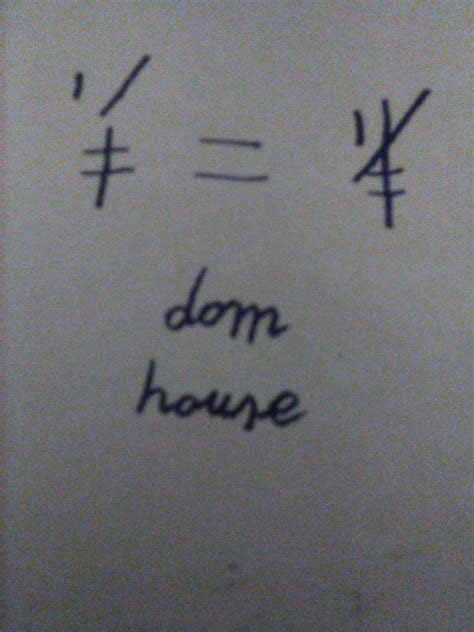 =
dom
house